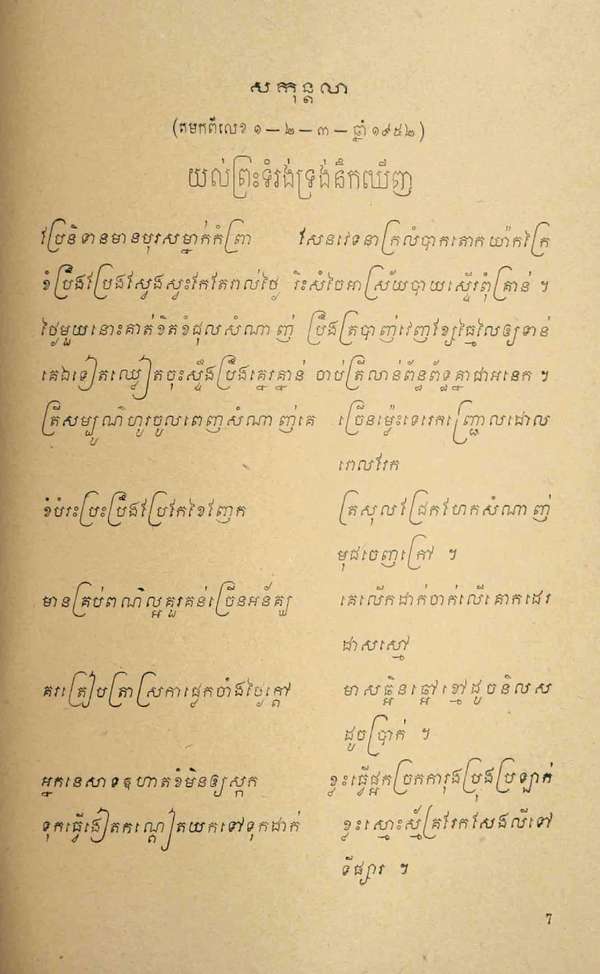 សកុន្តលា
(តមកពីលេខ ១ — ២ — ៣ — ឆ្នាំ ១៩៥២)
យល់ព្រះទំរង់ទ្រង់នឹកឃើញ
ប្រែនិទានមានបុរសម្នាក់កំព្រា វែសនវេទនាក្រលំបាកតោកយ៉ាកក្រៃ
ខំប្រឹងប្រែងស្វែងស្វះកែតែរាល់ថ្ងៃ រិះសំចៃអាស្រ័យបាយស្ទើរពុំគ្រាន់ ។
ថ្ងៃមួយនោះគាត់ខិតខំជុលសំណាញ់ ប្រឹងត្របាញ់វេញខ្សែធ្មៃលៃឲ្យទាន់
គេឯទៀតឈ្មៀតចុះស្ទឹងប្រឹងគ្នេរគ្នាន់ ចាប់ត្រីលាន់ព័ន្ធព័ទ្ធគ្នាជាអនេក ។
ត្រីសម្បូណ៌ហូរចូលពេញសំណាញ់គេ ច្រើនម្ល៉េះទេរេកញ្ជ្រោលដោល
ពេលវែក
ខំបំរះប្រះប្រឹងប្រែកែខៃញែក ត្រសុលជ្រែកហែកសំណាញ់
មុដចេញក្រៅ ។
មានគ្រប់ពណ៌ល្អគួរគន់ច្រើនអន័គ្ឃ គេលើកដាក់ចាក់លើគោកដេរ
ដាសស្មៅ
គរត្រៀបត្រាស្រកាផ្លេកចាំងថ្ងៃក្ដៅ មាសឆ្អិនឆ្អៅខ្មៅដូចនិលស
ដូចប្រាក់ ។
អ្នកនេសាទឧហាតខំមិនឲ្យស្កក ខ្លះធ្វើផ្អកច្រកការុងប្រុងប្រឡាក់
ទុកធ្វើងៀតកណ្ដៀតយកទៅទុកដាក់ ខ្លះស្មោះស្ម័គ្រវែកសែងលីទៅ
ទីផ្សារ ។
7